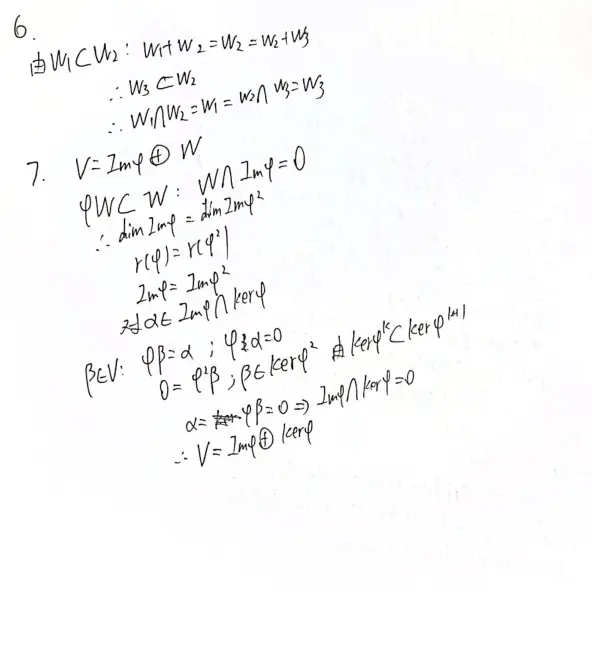 6.
由W₁⊂W₂: W₁+W₂=W₂=W₂+W₃
∴ W₃⊂W₂
∴ W₁∩W₂=W₁=W₂∩W₃=W₃
7. V=Imφ⊕W
φW⊂W: W∩Imφ=0
∴ dimImφ=dimImφ²
r(φ)=r(φ²)
Imφ=Imφ²
对α∈Imφ∩kerφ
β∈V: φβ=α; φα=0
0=φ²β; β∈kerφ² 由kerφᵏ⊂kerφᵏ⁺¹
α=φβ=0⇒Imφ∩kerφ=0
∴ V=Imφ⊕kerφ